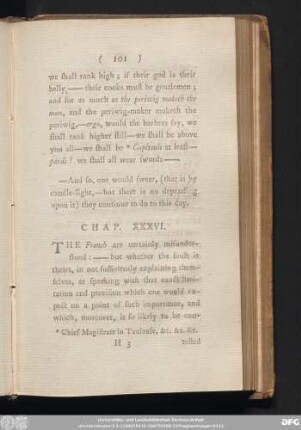 ( 101 )
we ſhall rank high; if their god is their
belly,—— their cooks muſt be gentlemen;
and for as much as the periwig maketh the
man, and the periwig-maker maketh the
periwig,—ergo, would the barbers ſay, we
ſhall rank higher ſtill—we ſhall be above
you all—we ſhall be * Capitouls at leaſt—
pardi! we ſhall all wear ſwords——
—And ſo, one would ſwear, (that is by
candle-light,—but there is no depending
upon it) they continue to do to this day.
CHAP. XXXVI.
THE French are certainly miſunder-
ſtood:——but whether the fault is
theirs, in not ſufficiently explaining them-
ſelves, or ſpeaking with that exact limi-
tation and preciſion which one would ex-
pect on a point of ſuch importance, and
which, moreover, is ſo likely to be con-
* Chief Magiſtrate in Toulouſe, &c. &c. &c.
H 3 teſted
DFG